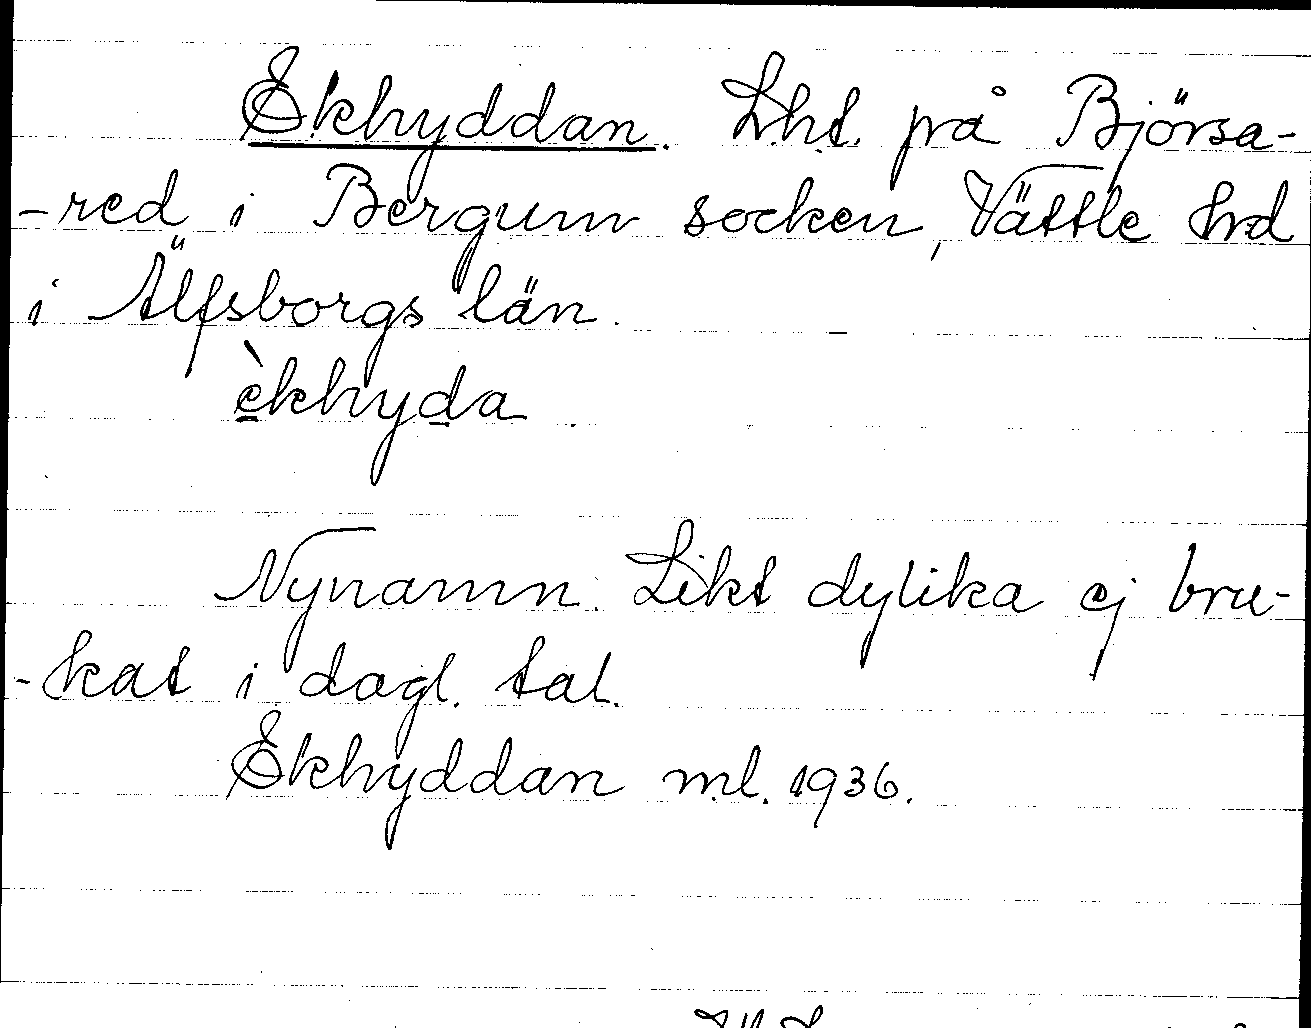 Ekhyddan. Lht. på Björsa-
-red i Bergum socken, Vättle hd
i Älfsborgs län.
èkhyda
Nynamn. Likt dylika ej bru-
-kat i dagl. tal.
Ekhyddan ml. 1936.